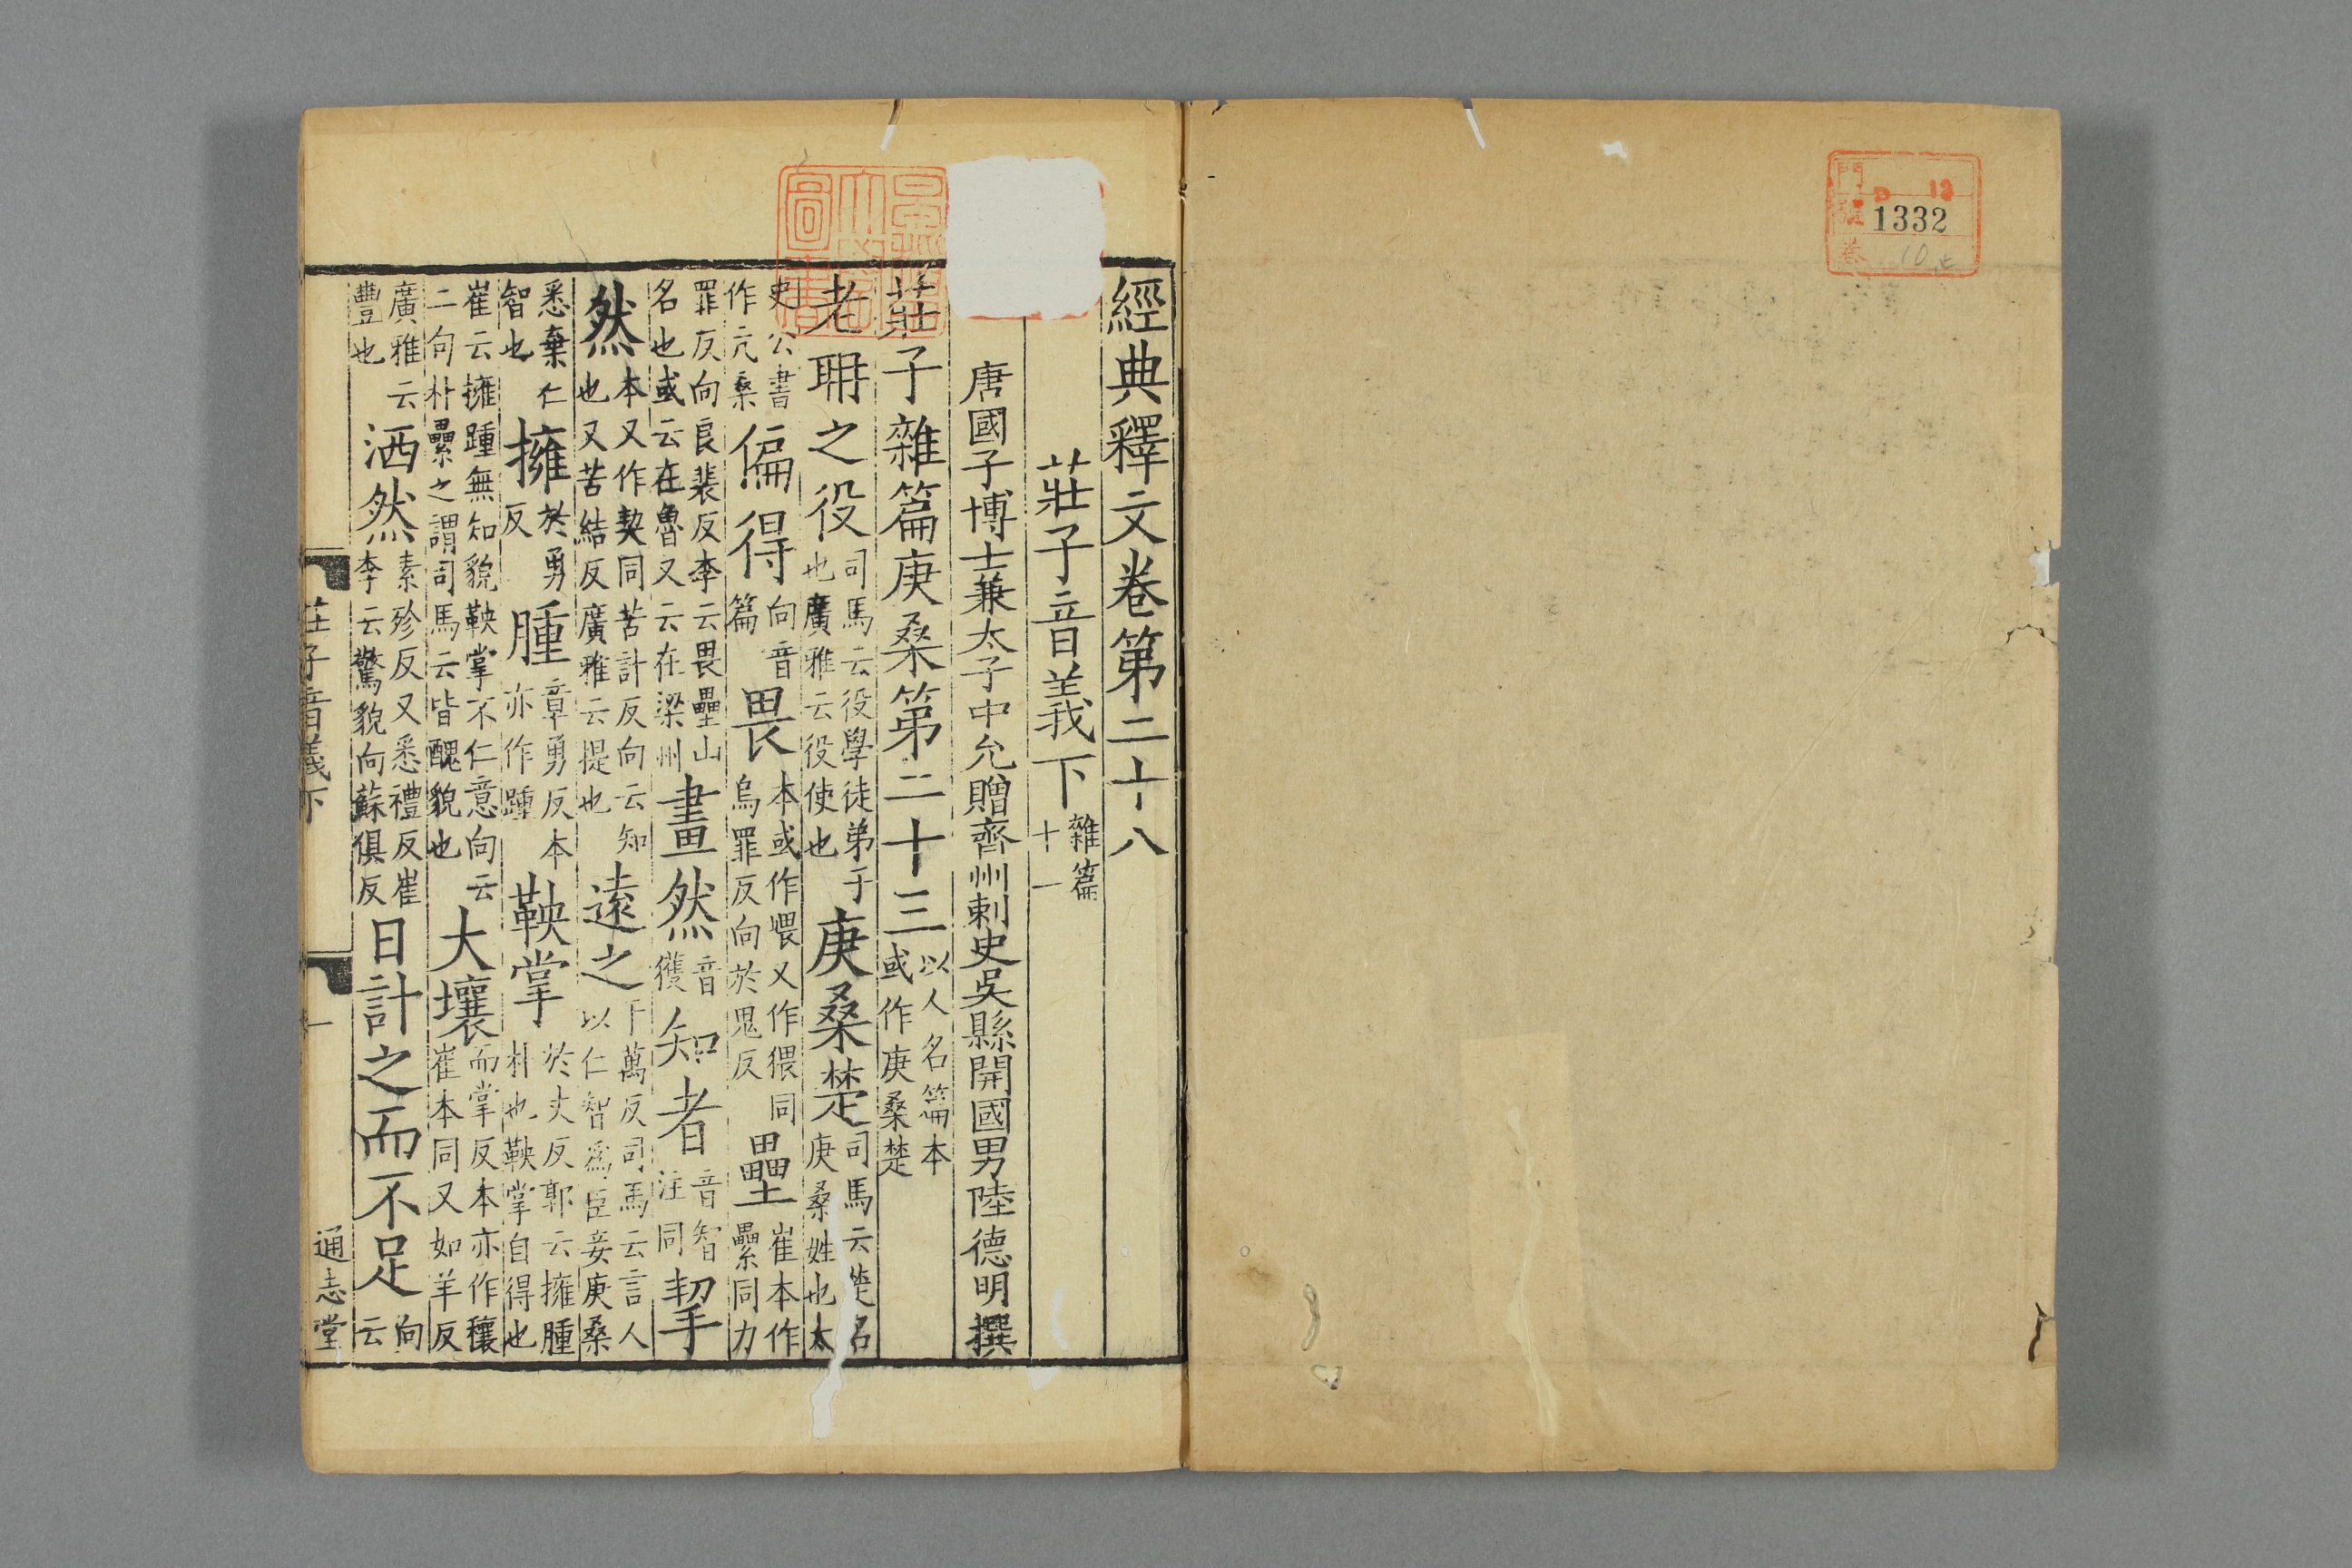 門
D 13
號 1332
卷 10
經典釋文卷第二十八
莊子音義下 雜篇十一
唐國子博士兼太子中允贈齊州刺史吳縣開國男陸德明撰
莊子雜篇庚桑第二十三 以人名篇本或作庚桑楚
老聃之役 司馬云役學徒弟子也廣雅云役使也 庚桑楚 司馬云楚名庚桑姓也太
史公書作亢桑 偏得 向音篇 畏 本或作㟪又作猥同烏罪反向於鬼反 壘 崔本作纍同力
罪反向良裴反李云畏壘山名也或云在魯又云在梁州 畫然 音獲 知者 音智注同 挈
然 本又作契同苦計反向云知也又苦結反廣雅云提也 遠之 于萬反司馬云言人以仁智為臣妾庚桑
悉棄仁智也 擁 於勇反 腫 章勇反本亦作踵 鞅掌 於丈反郭云擁腫朴也鞅掌自得也
崔云擁踵無知貌鞅掌不仁意向云二句朴纍之謂司馬云皆醜貌也 大壤 而掌反本亦作穰崔本同又如羊反
廣雅云豐也 洒然 素殄反又悉禮反崔李云驚貌向蘇俱反 日計之而不足 向云
莊子音義下
一
通志堂